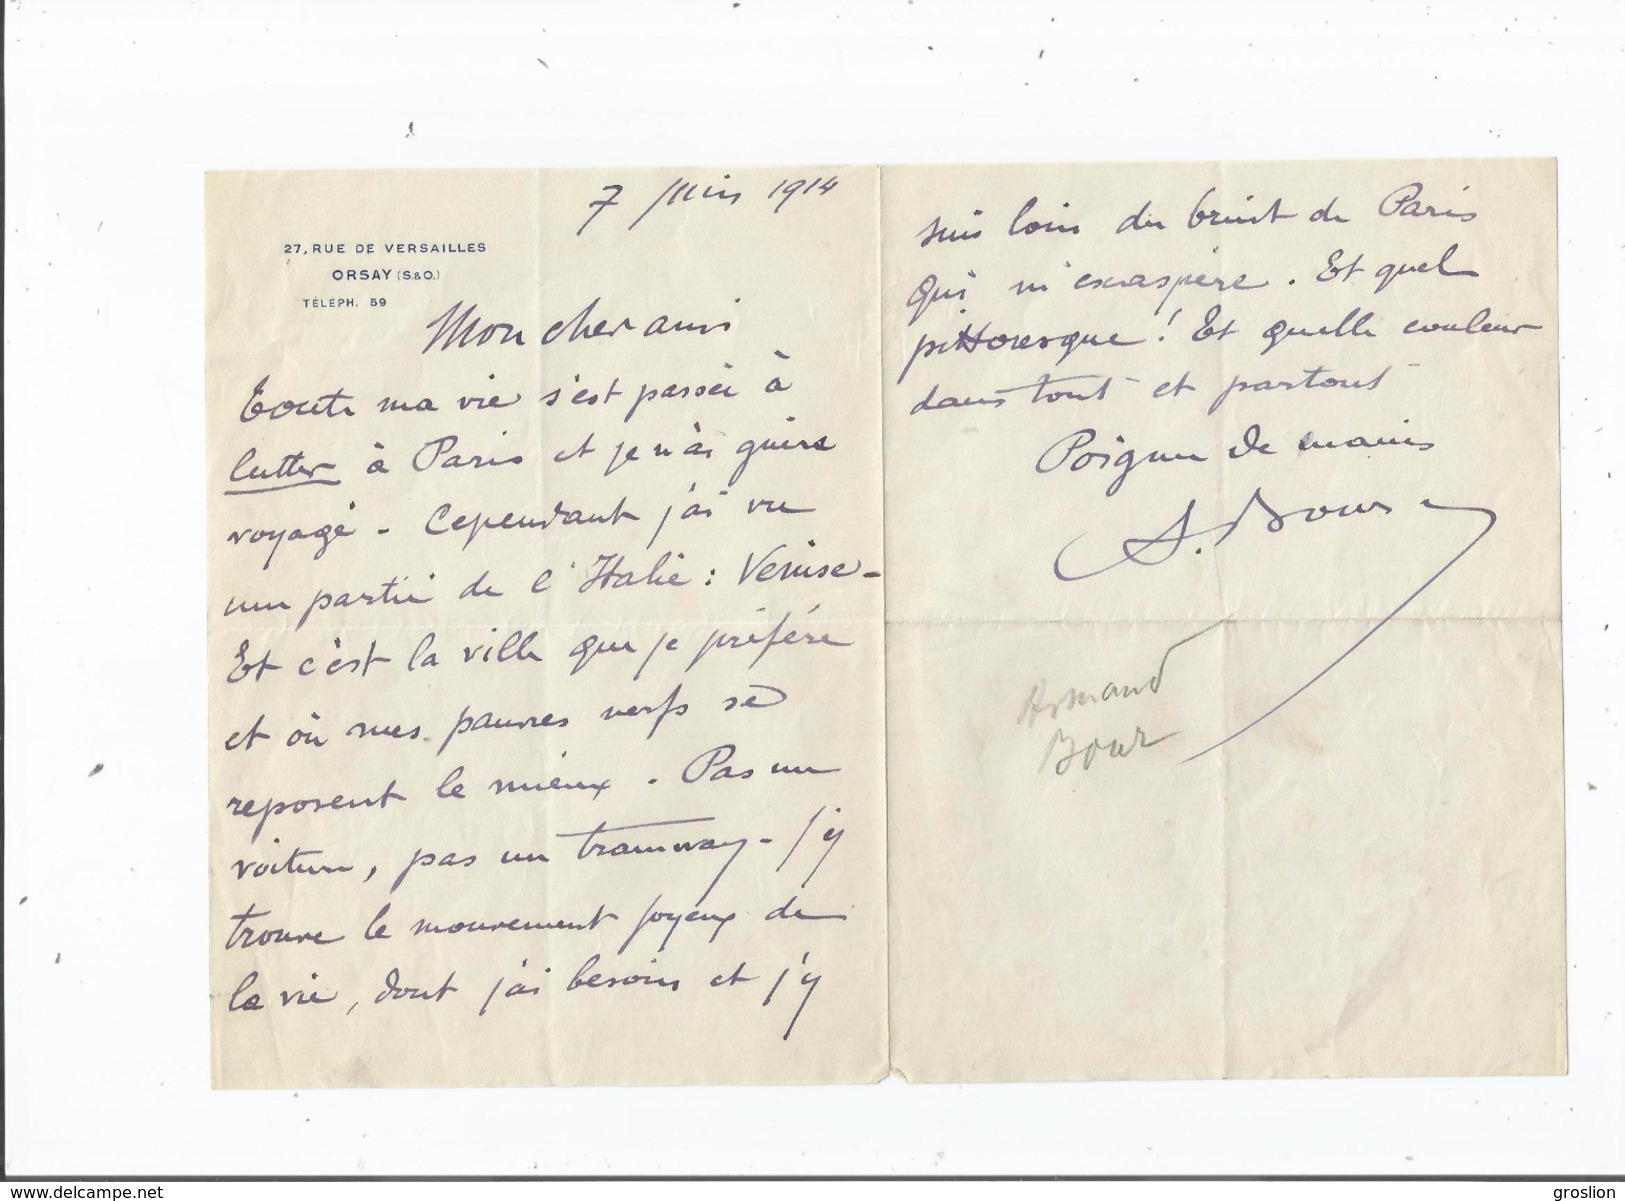 7 Juin 1914
27, RUE DE VERSAILLES
ORSAY (S.&O.)
TÉLÉPH. 59
Mon cher ami
Toute ma vie s'est passée à
lutter à Paris et je n'ai guère
voyagé - Cependant j'ai vu
une partie de l'Italie : Venise -
Et c'est la ville que je préfère
et où mes pauvres nerfs se
reposent le mieux. Pas une
voiture, pas un tramway - J'y
trouve le mouvement joyeux de
la vie, dont j'ai besoin et j'y
suis loin du bruit de Paris
qui m'exaspère. Et quel
pittoresque ! Et quelle couleur
dans tout et partout
Poignée de mains
A. Bour
Armand
Bour
www.delcampe.net
groslion